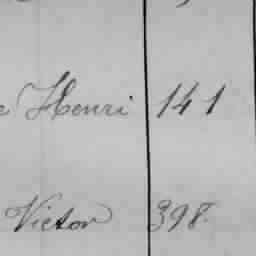 e Henri 141
Victor 398